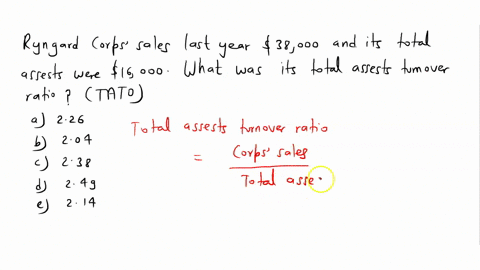 Ryngard Corps' sales last year $38,000 and its total
assests were $16,000. What was its total assests turnover
ratio? (TATO)
a) 2.26
b) 2.04
c) 2.38
d) 2.49
e) 2.14
Total assests turnover ratio
= Corps' sales
Total asse